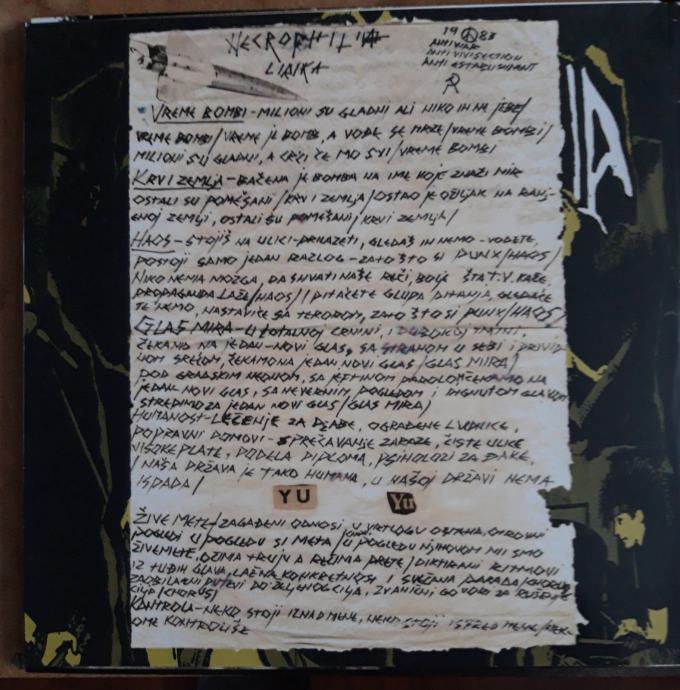 NECROPHILIA
LIRIKA
1983
ANTIWAR
ANTI VIVISECTION
ANTI ESTABLISHMENT
IA
VREME BOMBI - MILIONI SU GLADNI ALI NIKO IH NE JEBE/
VREME BOMBI/VREME JE BOMBE, A VOĐE SE MRZE/VREME BOMBI/
MILIONI SU GLADNI, A CRĆI ĆE MO SVI/VREME BOMBI
KRV I ZEMLJA - BAČENA JE BOMBA NA IME KOJE ZNAŽI MIR
OSTALI SU POMEŠANI/KRV I ZEMLJA/OSTAO JE OŽILJAK NA RANJ-
ENOJ ZEMLJI, OSTALI SU POMEŠANI/KRVI ZEMLJA/
HAOS - STOJIŠ NA ULICI - PRIKAZETI, GLEDAŠ IH NEMO - VODETE,
POSTOJI SAMO JEDAN RAZLOG - ZATO ŠTO SI PUNX/HAOS/
NIKO NEMA MOZGA, DA SHVATI NAŠE REČI, BOLJE ŠTA T.V. KAŽE,
PROPAGANDA LAŽE/HAOS/I PITAĆETE GLUPA PITANJA, GLEDAĆE
TE NEMO, NASTAVIĆE SA TERODOM, ZATO ŠTO SI PUNX/HAOS/
GLAS MIRA - U TOTALNOJ CRNINI, I DUBOKOJ TMINI,
ČEKAMO NA JEDAN - NOVI GLAS, SA STRAHOM U SEBI I PRIVID-
NOM SREĆOM, ČEKAMO NA JEDAN NOVI GLAS/GLAS MIRA/
POD GRADSKIM NEONOM, SA JEFTINOM
JEDAN NOVI GLAS, SA NEVERNIM POGLEDOM I DIGNUTOM GLAVOM
STREPIMO ZA JEDAN NOVI GLAS/GLAS MIRA/
HUMANOST - LEČENJE ZA DŽABE, OGRAĐENE LUDNICE,
POPRAVNI DOMOVI - SPREČAVANJE ZARAZE, ČISTE ULICE
VISOKE PLATE, PODELA DIPLOMA, PSIHOLOZI ZA ĐAKE,
/NAŠA DRŽAVA JE TAKO HUMANA, U NAŠOJ DRŽAVI NEMA
ISPADA/
YU Yu
ŽIVE METE/ZAGAĐENI ODNOSI, U VRTLOGU OBMANA, OTROVNI
POGLEDI U POGLEDU SI META/U POGLEDU NJIHOVOM MI SMO
ŽIVE METE, OČIMA TRUJU A REČIMA PRETE/DIKTIRANI RITMOVI
IZ TUĐIH GLAVA, LAŽNA KONKRETNOST I SVEČANA PARADA/CHORUS/
ZAOBILAZNI PUTEVI DO ŽELJENOG CILJA, ZVANIČNI GOVORI ZA RUŠENJE
CILJA/CHORUS/
KONTROLA - NEKO STOJI IZNAD MENE, NEKO STOJI ISPRED MENE/NEK-
O ME KONTROLIŠE